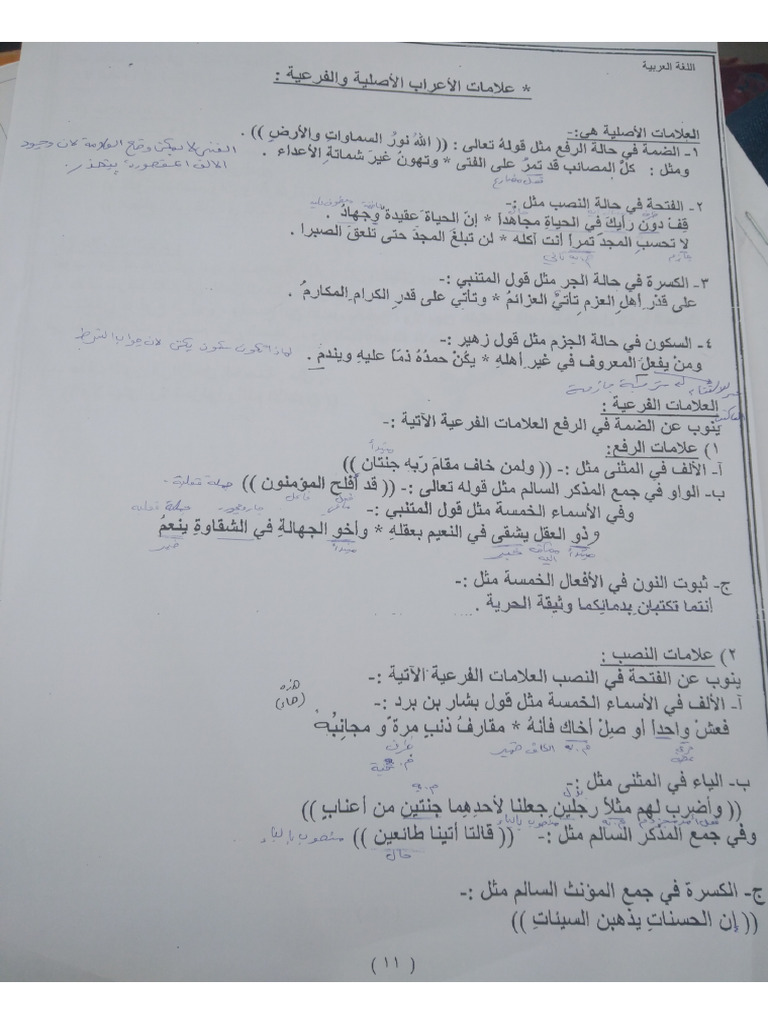 اللغة العربية
* علامات الأعراب الأصلية والفرعية :
العلامات الأصلية هي:-
١- الضمة في حالة الرفع مثل قولة تعالى : (( اللهُ نورُ السماواتِ والأرضِ )) .
ومثل : كلُّ المصائب قد تمرُ على الفتى * وتهونُ غيرَ شماتةِ الأعداء .
فعل مضارع
٢- الفتحة في حالة النصب مثل :-
قِف دونَ رأيكَ في الحياةِ مجاهداً * إنّ الحياةَ عقيدة وجهادُ .
لا تحسبِ المجدَ تمراً أنت آكله * لن تبلغَ المجدَ حتى تلعقَ الصبرا .
جازم م. به ثاني
٣- الكسرة في حالة الجر مثل قول المتنبي :-
على قدْرِ أهلِ العزمِ تأتيَّ العزائمُ * وتأتي على قدرِ الكرامِ المكارمُ .
٤- السكون في حالة الجزم مثل قول زهير :-
لماذا تكون سكون يكن لان جواب الشرط
ومنْ يفعلِ المعروف في غير أهلهِ * يكُنْ حمدُهُ ذمّاً عليهِ ويندمُ .
العلامات الفرعية :
ينوب عن الضمة في الرفع العلامات الفرعية الآتية :-
١) علامات الرفع:
مبتدأ
آ- الألف في المثنى مثل :- (( ولمن خاف مقامَ ربّه جنتان ))
ب- الواو في جمع المذكر السالم مثل قوله تعالى :- (( قد أفلح المؤمنون )) جملة فعلية -
فعل ماضي فاعل
وفي الأسماء الخمسة مثل قول المتنبي :-
جار ومجرور جملة فعلية
وذو العقل يشقى في النعيم بعقلهِ * وأخو الجهالة في الشقاوةِ ينعمُ
مبتدأ مضاف اليه خبر مبتدأ خبر
ج- ثبوت النون في الأفعال الخمسة مثل :-
أنتما تكتبان بِدمائِكما وثيقة الحرية .
٢) علامات النصب :
ينوب عن الفتحة في النصب العلامات الفرعية الآتية :-
آ- الألف في الأسماء الخمسة مثل قول بشار بن برد :-
هذه
فعشْ واحداً أو صِلْ أخاك فأنهُ * مقارفُ ذنبٍ مرة ً و مجانِبُهْ
م. به الكاف ضمير
ب- الياء في المثنى مثل :-
بدل م. به
(( وأضرب لهم مثلاً رجلينِ جعلنا لأحدِهِما جنتينِ من أعنابٍ ))
فعل أمر م. به منصوب بالياء
وفي جمع المذكر السالم مثل :- (( قالتا أتينا طائعين )) منصوب بالياء
حال
ج- الكسرة في جمع المؤنث السالم مثل :-
(( إن الحسناتِ يذهبن السيئاتِ ))
( ١١ )